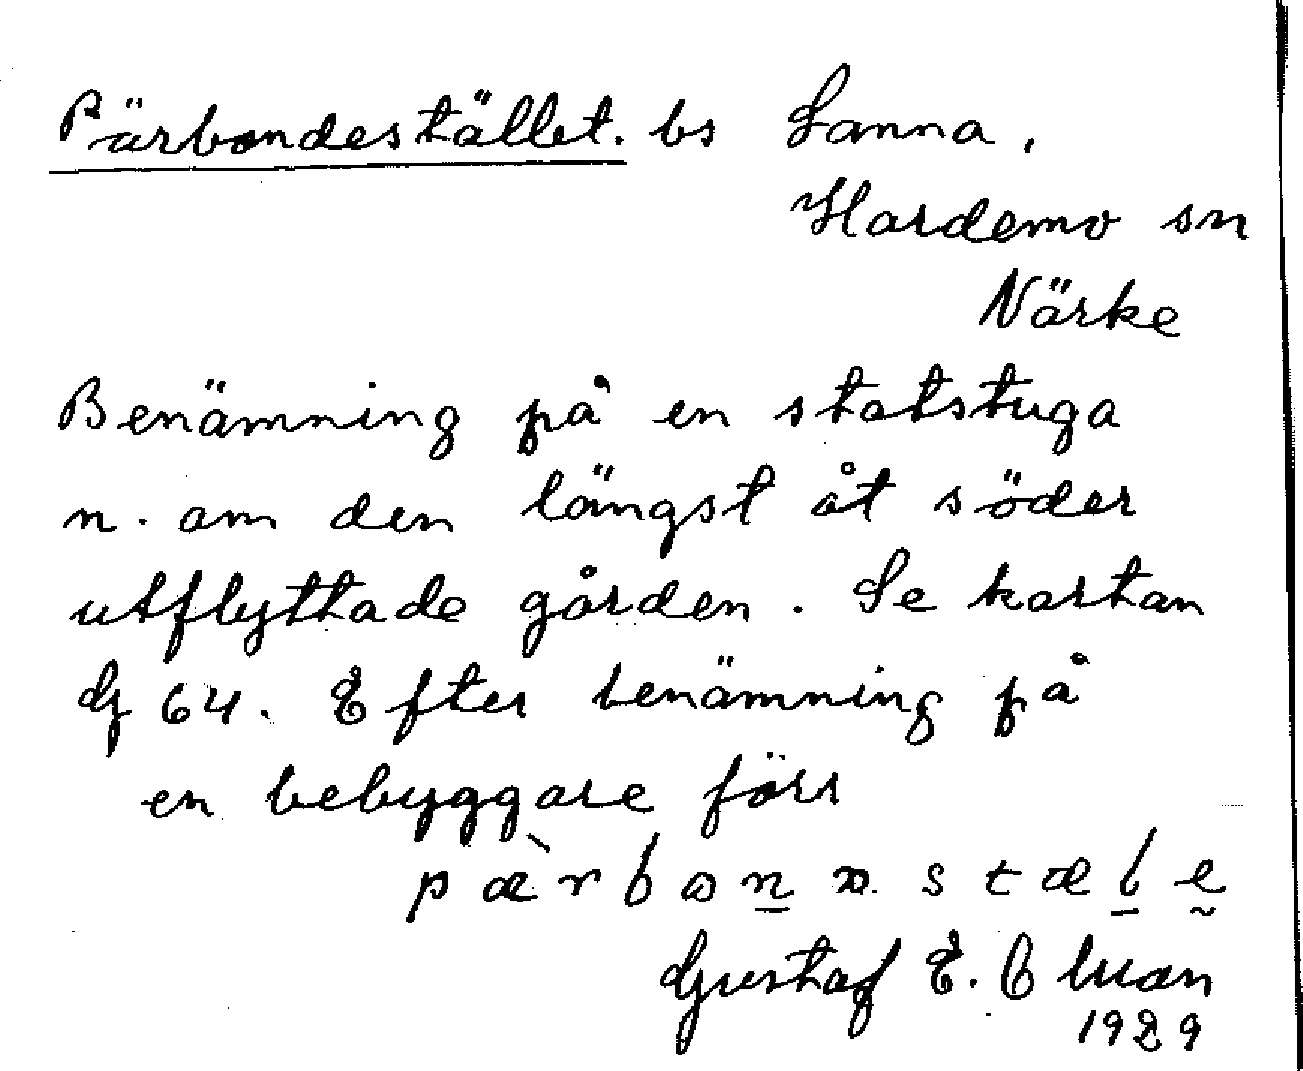 Pärbondestället. bs Sanna,
Hardemo sn
Närke
Benämning på en statstuga
n. om den längst åt söder
utflyttade gården. Se kartan
G 64. Efter benämning på
en bebyggare förr
Gustaf E.
1929